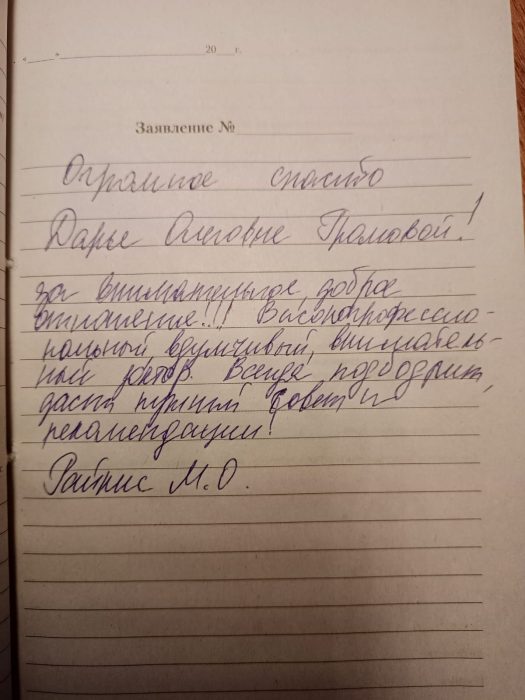 «____»____________________ 20___г.
Заявление №
Огромное спасибо
Дарье Олеговне Громовой!
за внимательное, доброе
отношение!!! Высокопрофессио-
нальный, вдумчивый, вниматель-
ный доктор. Всегда подбодрит,
даст нужный совет и
рекомендации!
Райнис М.О.